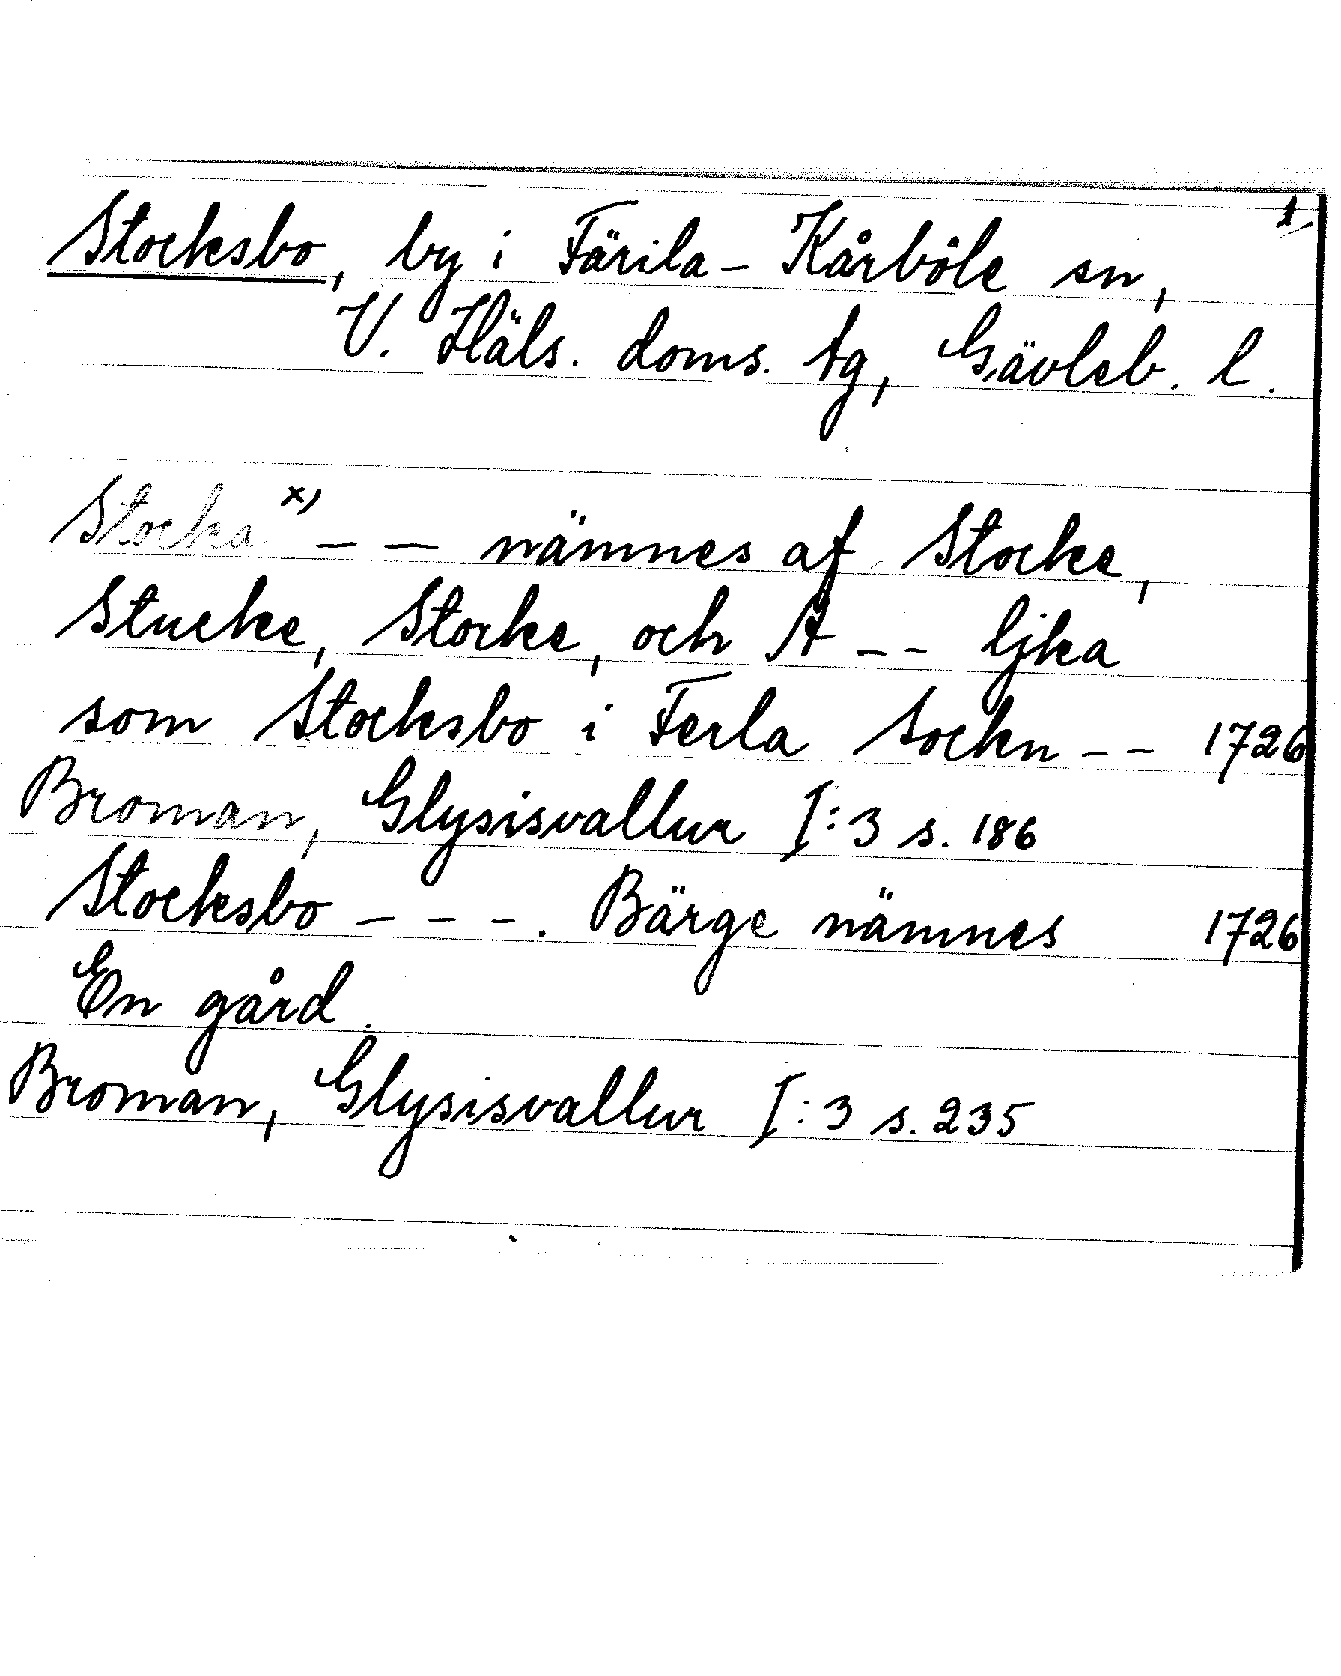 1
Stocksbo, by i Färila-Kårböle sn,
V. Häls. doms. tg, Gävleb. l.
Stocka x) - - nämnes af Stocke,
Stucke, Stocke, och A - - ljka
som Stocksbo i Ferla Sockn - - 1726
Broman, Glysisvallur I:3 s. 186
Stocksbo - - -. Bärge nämnes 1726
En gård.
Broman, Glysisvallur I:3 s. 235